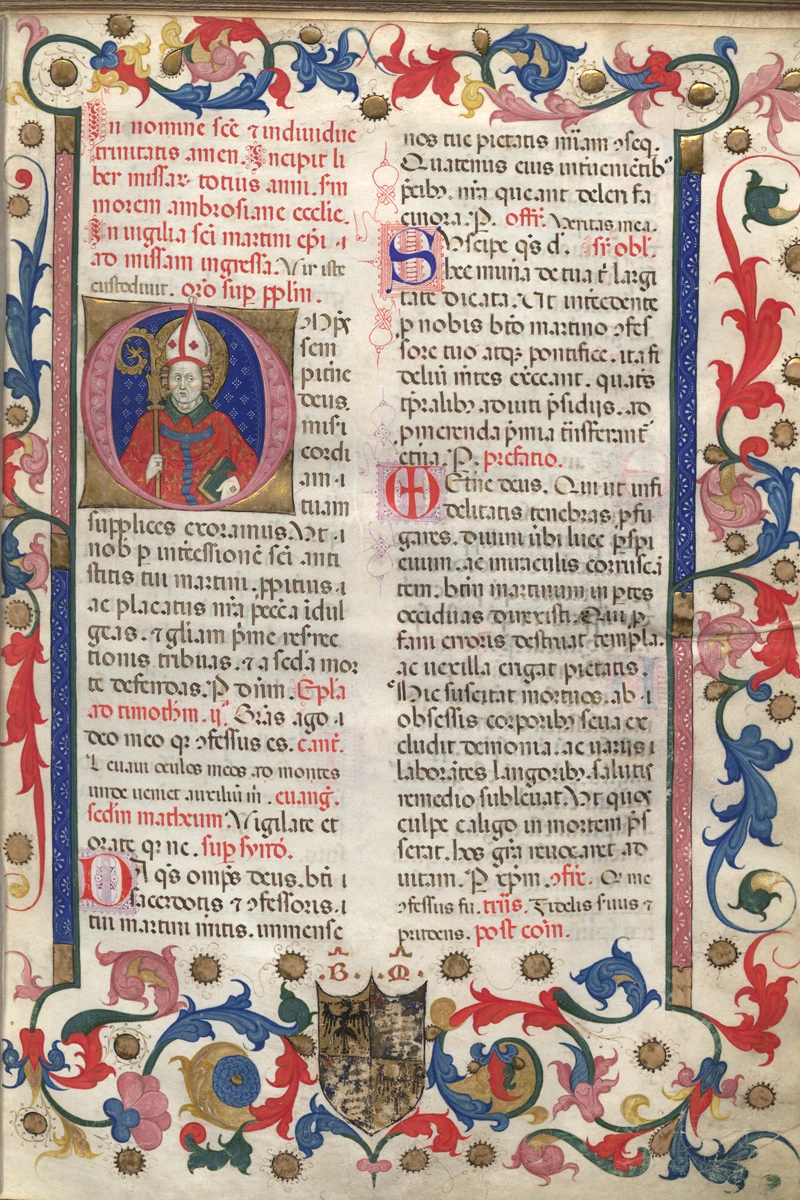 In nomine scē ⁊ indiuidue
trinitatis amen. Incipit li
ber missar totius anni. sm
morem ambrosiane ecclīe.
In uigilia sci martini ep̄i ·i·
ad missam ingressa. Vir iste
custodiuit. or̄o sup pplm̄.
OMp̄s
sem
pit̄ne
deus.
misi
cordi
am ·i·
tuam
supplices exoramus. Vt ·i·
nob̄ p int̄cessionē sc̄i anti
stitis tui martini. ppitius ·i·
ac placatus nr̄a pecc̄a īdul
geas. ⁊ gl̄iam
tionis tribuas. ⁊ a sc̄da mor
te defendas. P dn̄m. Ep̄la
ad timoth̄m. ij. Grās ago ·i·
deo meo qr ꝯfessus es. cant̄.
Leuaui oculos meos ad montes
unde ueniet auxiliū m̄. euanḡ.
sedm̄ matheum. Vigilate et
orate qr ne. sup syn̄d̄.
DA q̄s omp̄s deus. bt̄i ·i·
sacerdotis ⁊ ꝯfessoris ·i·
tui martini initis. immense
nos tue pietatis mīam ꝯseq.
Quatenus eius int̄uenietib᷒
p̄cib᷒. nr̄a queant deleri fa
cinora. P. off̄. Veritas mea.
SVscipe q̄s d̄. sr̄ obl̄.
hec mun̄a de tua t̄ largi
tate dicata. Vt int̄cedente
p nobis bt̄o martino ꝯfes
sore tuo atq᷒ pontifice. ita fi
delium m̄tes
tp̄ralib᷒ adiuti p̄sidijs. ad
p̄mia
et̄na. P. prefatio.
Et̄ne deus. Qui ut infi
delitatis tenebras p̄fu
gares. diuini u̇bi luce p̄spi
cuum. ac miraculis corruscā
tem. bt̄m martinum in p̄tes
occiduas direxisti. Qui p̄
fani erroris destruat templa.
ac uexilla erigat pietatis.
Hic suscitat mortuos. ab ·i·
obsessis corporib᷒ seua ex
cludit demonia. ac uariis ·i·
laborātes langorib᷒. salutis
remedio subleuat. Vt quos
culpe caligo in mortem
serat. hos gr̄a reuocaret ad
uitam. P xp̄m. ꝯfr̄. Qi me
ꝯfessus fu. tr̄iis. Fidelis s̄uus ⁊
prudens. post com̄.
B. M.